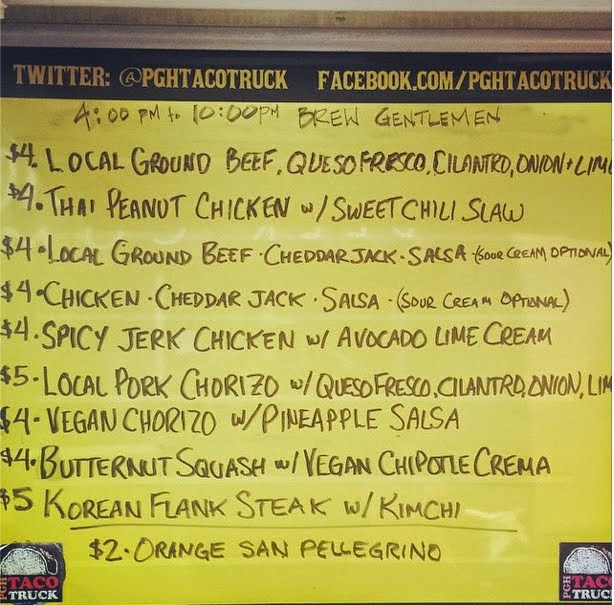 TWITTER: @PGHTACOTRUCK FACEBOOK.COM/PGHTACOTRUCK
4:00 PM to 10:00PM BREW GENTLEMEN
$4. LOCAL GROUND BEEF, QUESO FRESCO, CILANTRO, ONION + LIME
$4. THAI PEANUT CHICKEN w/ SWEET CHILI SLAW
$4 • LOCAL GROUND BEEF • CHEDDAR JACK • SALSA • (SOUR CREAM OPTIONAL)
$4 • CHICKEN • CHEDDAR JACK • SALSA - (SOUR CREAM OPTIONAL)
$4. SPICY JERK CHICKEN w/ AVOCADO LIME CREAM
$5 - LOCAL PORK CHORIZO w/ QUESO FRESCO, CILANTRO, ONION, LIM
$4 - VEGAN CHORIZO w/ PINEAPPLE SALSA
$4. BUTTERNUT SQUASH w/ VEGAN CHIPOTLE CREMA
$5 KOREAN FLANK STEAK w/ KIMCHI
$2. ORANGE SAN PELLEGRINO
PGH TACO TRUCK
PGH TACO TRUCK